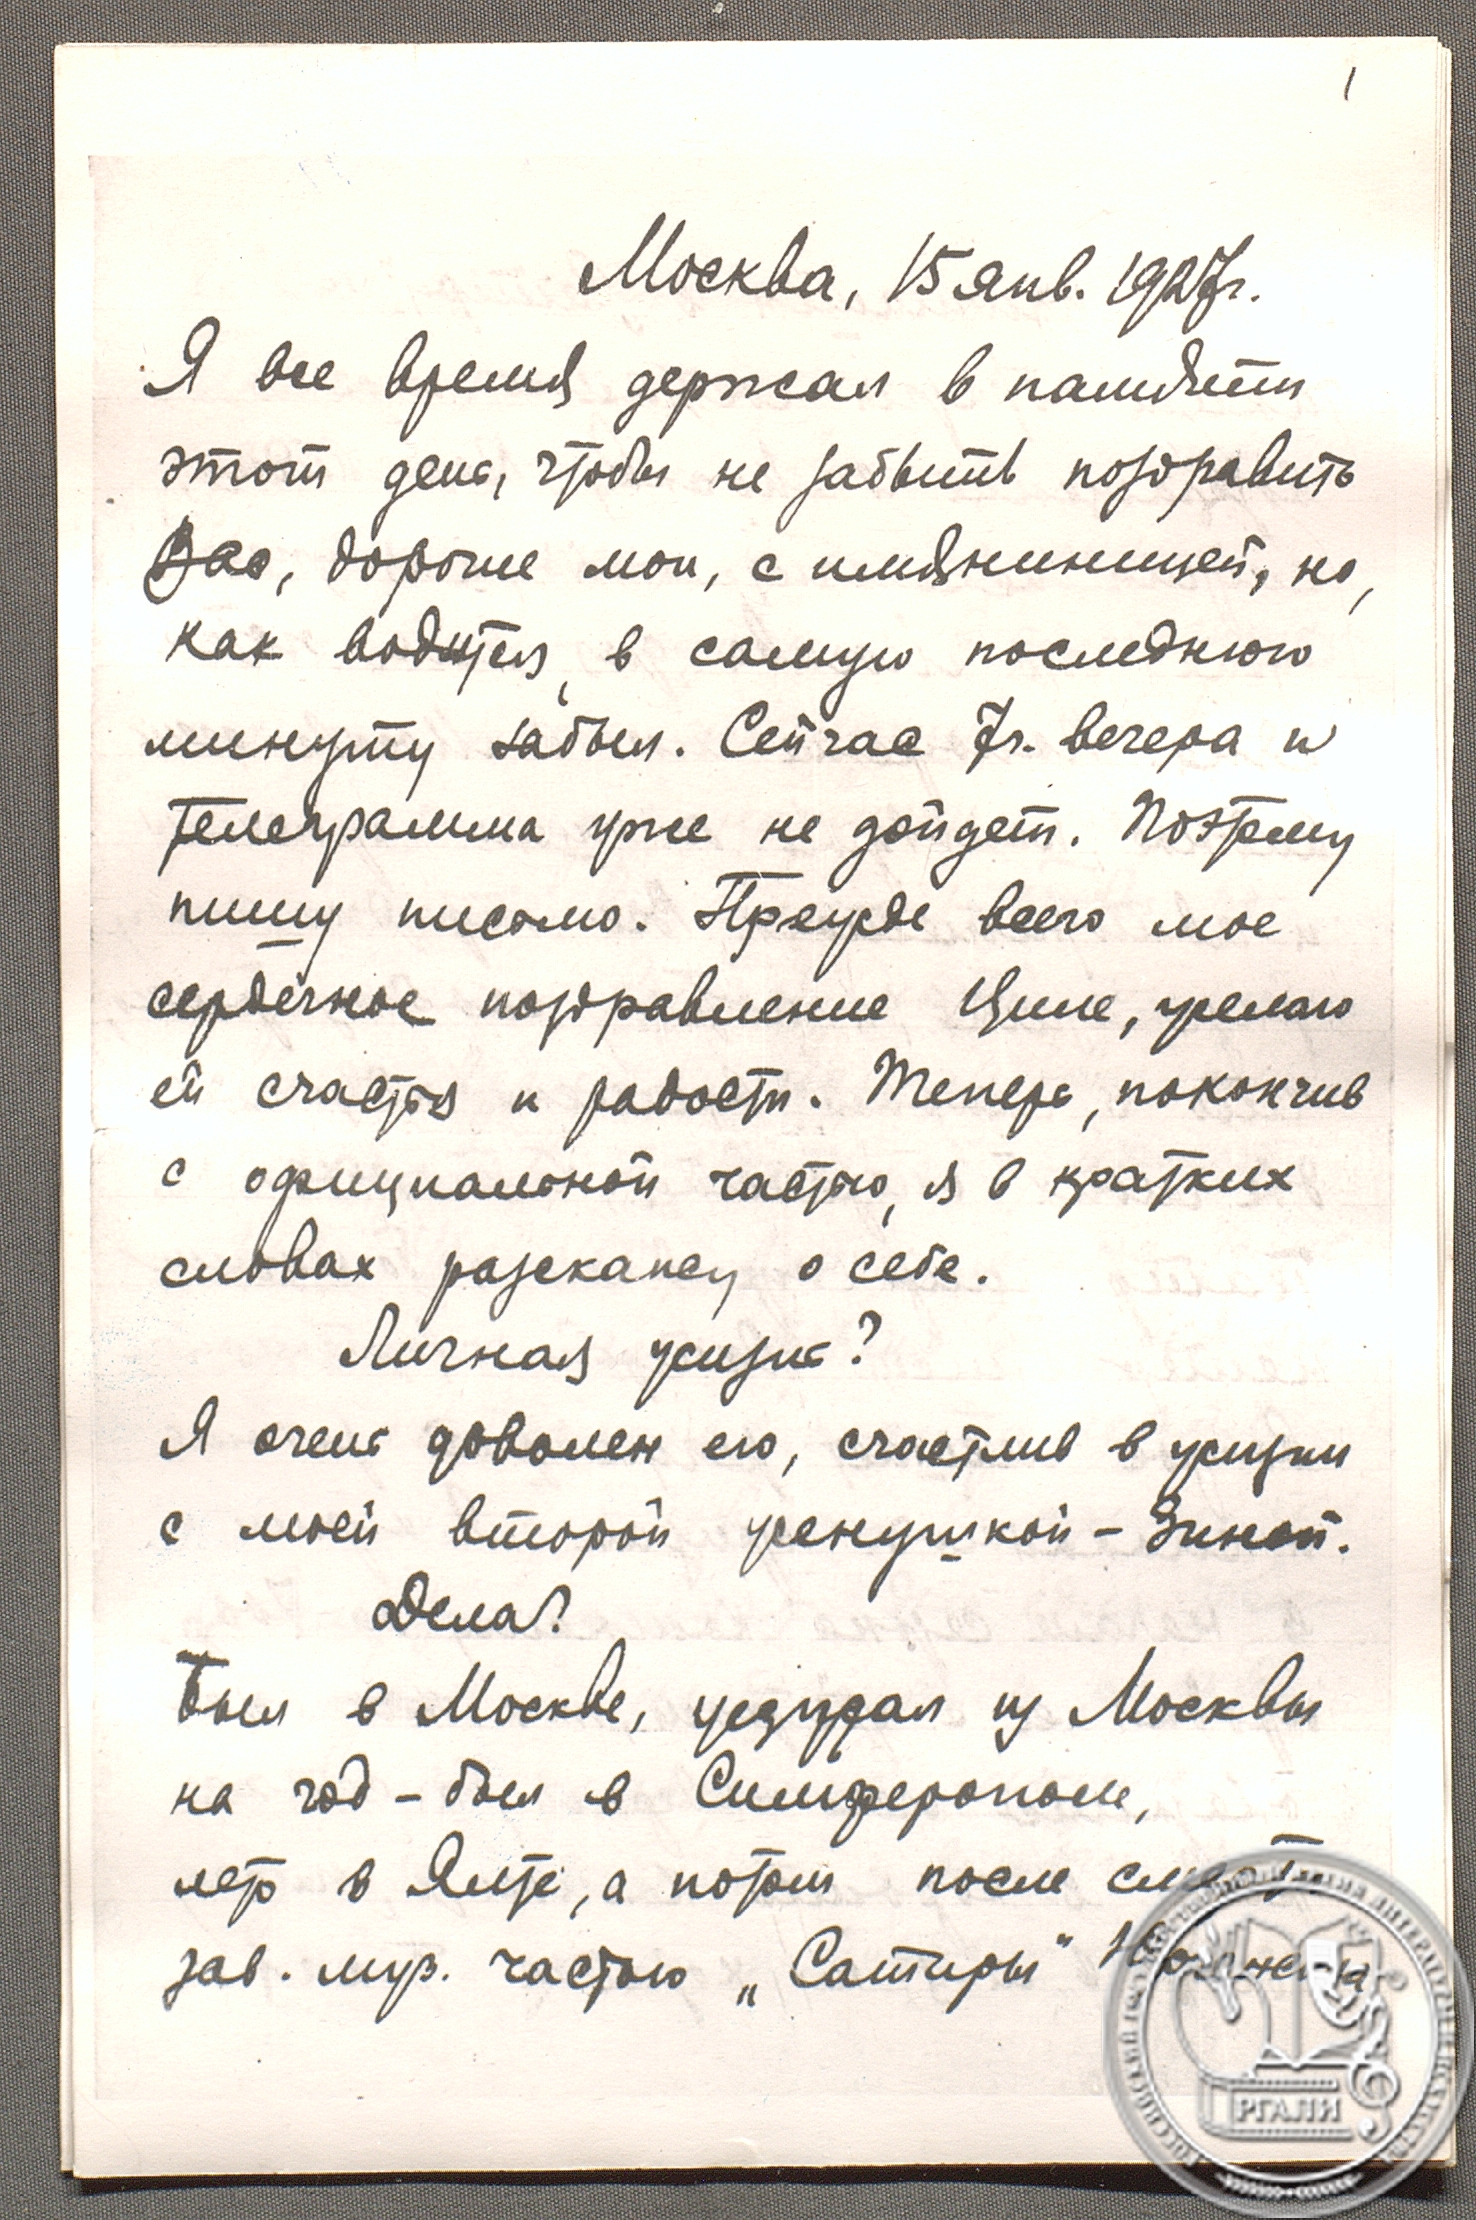 1
Москва, 15 янв. 1927г.
Я все время держал в памяти
этот день, чтобы не забыть поздравить
Вас, дорогие мои, с имянинницей, но,
как водится, в самую последнюю
минуту забыл. Сейчас 7ч. вечера и
телеграмма уже не дойдет. Поэтому
пишу письмо. Прежде всего мое
сердечное поздравление Циле, желаю
ей счастья и радости. Теперь, покончив
с официальной частью, я в кратких
словах разскажу о себе.
Личная жизнь?
Я очень доволен ею, счастлив в жизни
с моей второй женушкой – Зиной.
Дела?
Был в Москве, уезжал из Москвы
на год – был в Симферополе,
лето в Ялте, а потом после смерти
зав. муз. частью „Сатиры"
РГАЛИ